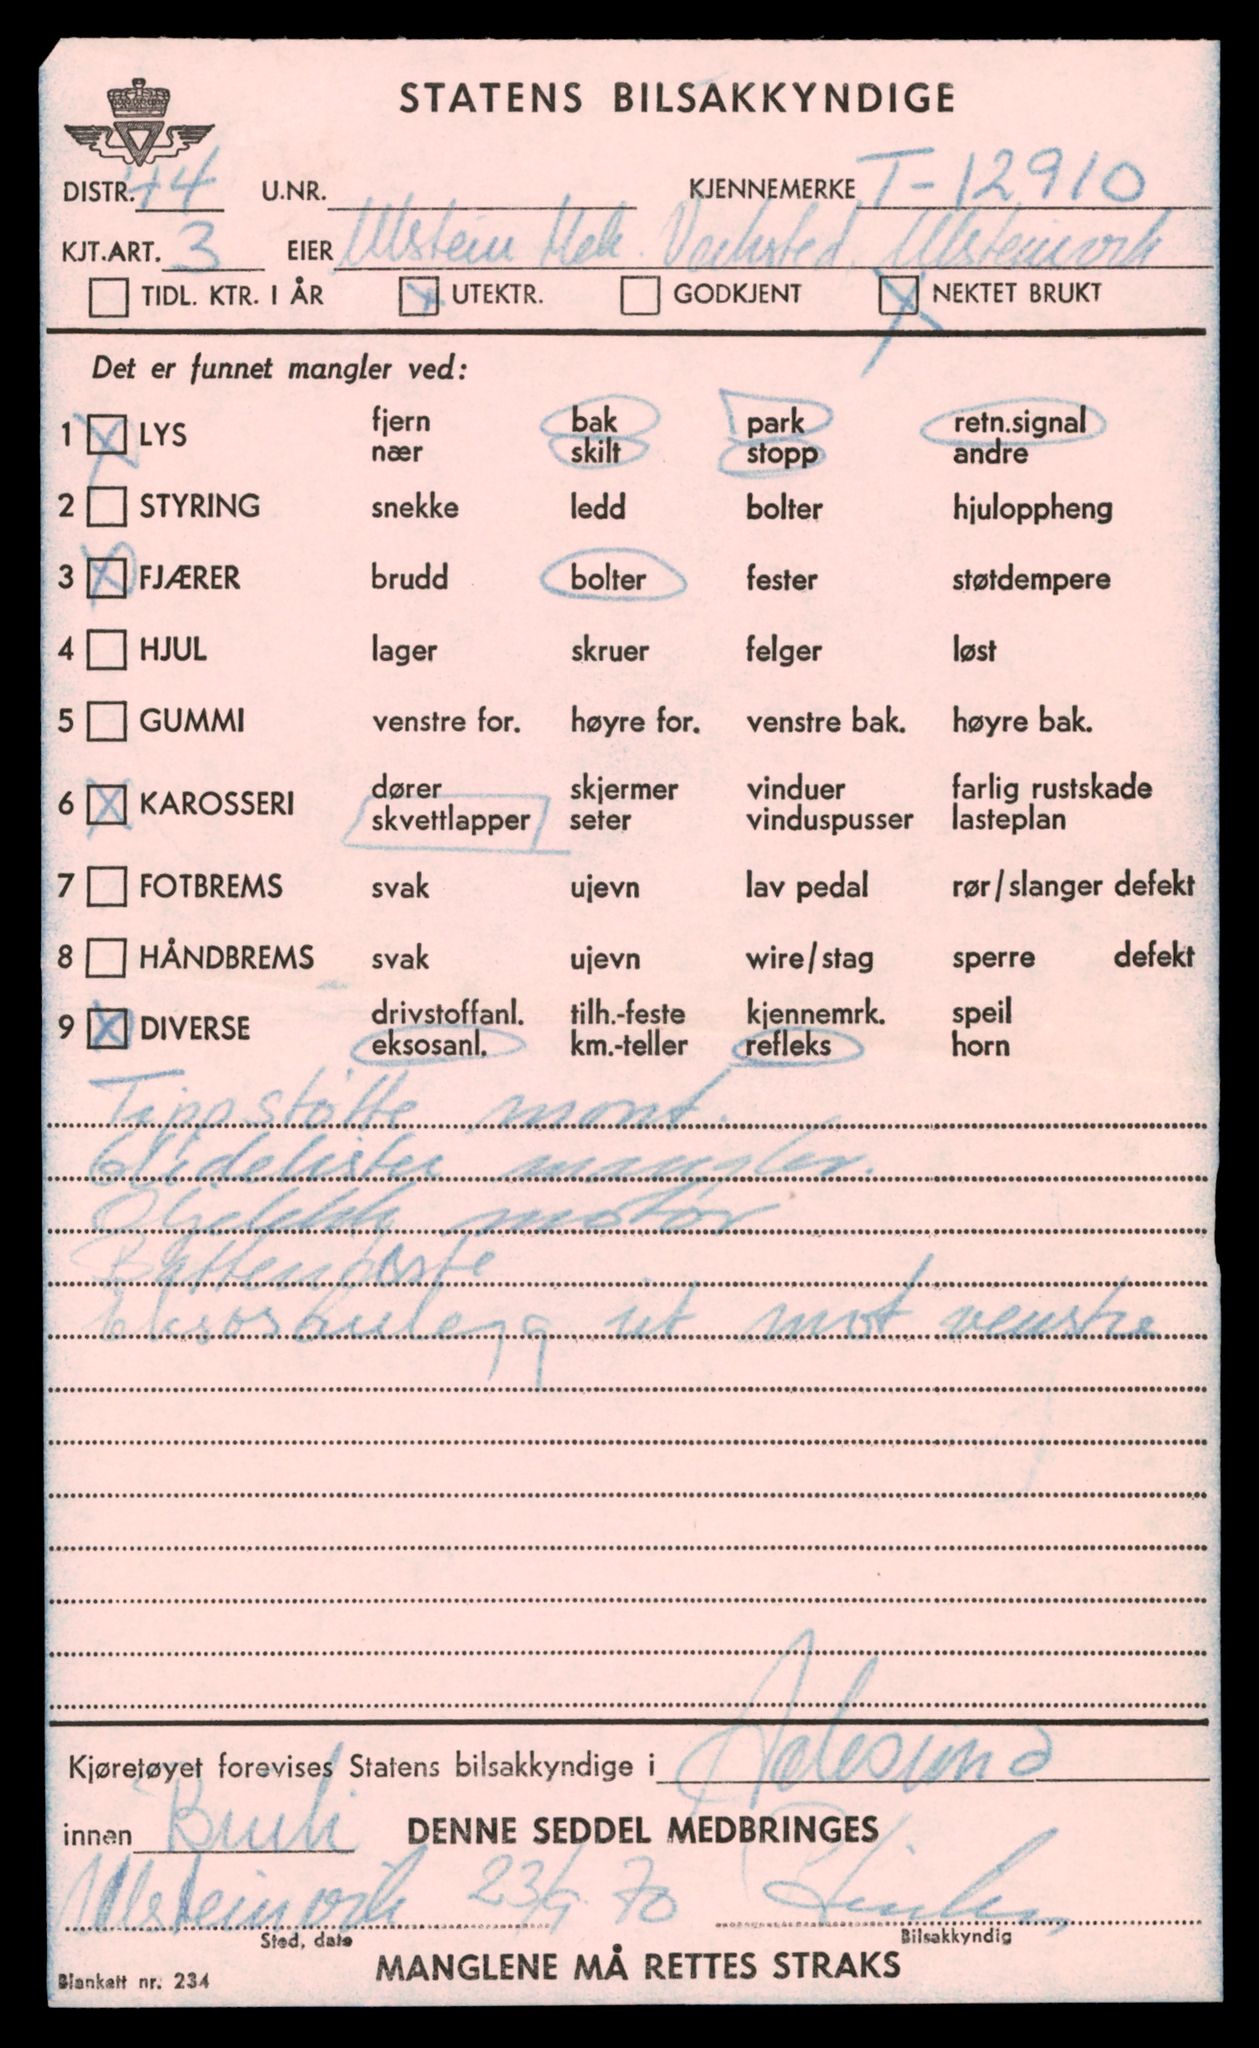 STATENS BILSAKKYNDIGE
DISTR. 44 U.NR. KJENNEMERKE T-12910
KJT.ART. 3 EIER Ulstein Mek. Verksted, Ulsteinvik
TIDL. KTR. I ÅR UTEKTR. GODKJENT NEKTET BRUKT
Det er funnet mangler ved:
1 LYS fjern bak park retn.signal
nær skilt stopp andre
2 STYRING snekke ledd bolter hjuloppheng
3 FJÆRER brudd bolter fester støtdempere
4 HJUL lager skruer felger løst
5 GUMMI venstre for. høyre for. venstre bak. høyre bak.
6 KAROSSERI dører skjermer vinduer farlig rustskade
skvettlapper seter vinduspusser lasteplan
7 FOTBREMS svak ujevn lav pedal rør/slanger defekt
8 HÅNDBREMS svak ujevn wire/stag sperre defekt
9 DIVERSE drivstoffanl. tilh.-feste kjennemrk. speil
eksosanl. km.-teller refleks horn
Tippstøtte mont.
Glidelister mangler.
motor
Eksosanlegg ut mot venstre
Kjøretøyet forevises Statens bilsakkyndige i Aalesund
innen Bruk DENNE SEDDEL MEDBRINGES
Ulsteinvik 23/9 70
Sted, date Bilsakkyndig
MANGLENE MÅ RETTES STRAKS
Blankett nr. 234